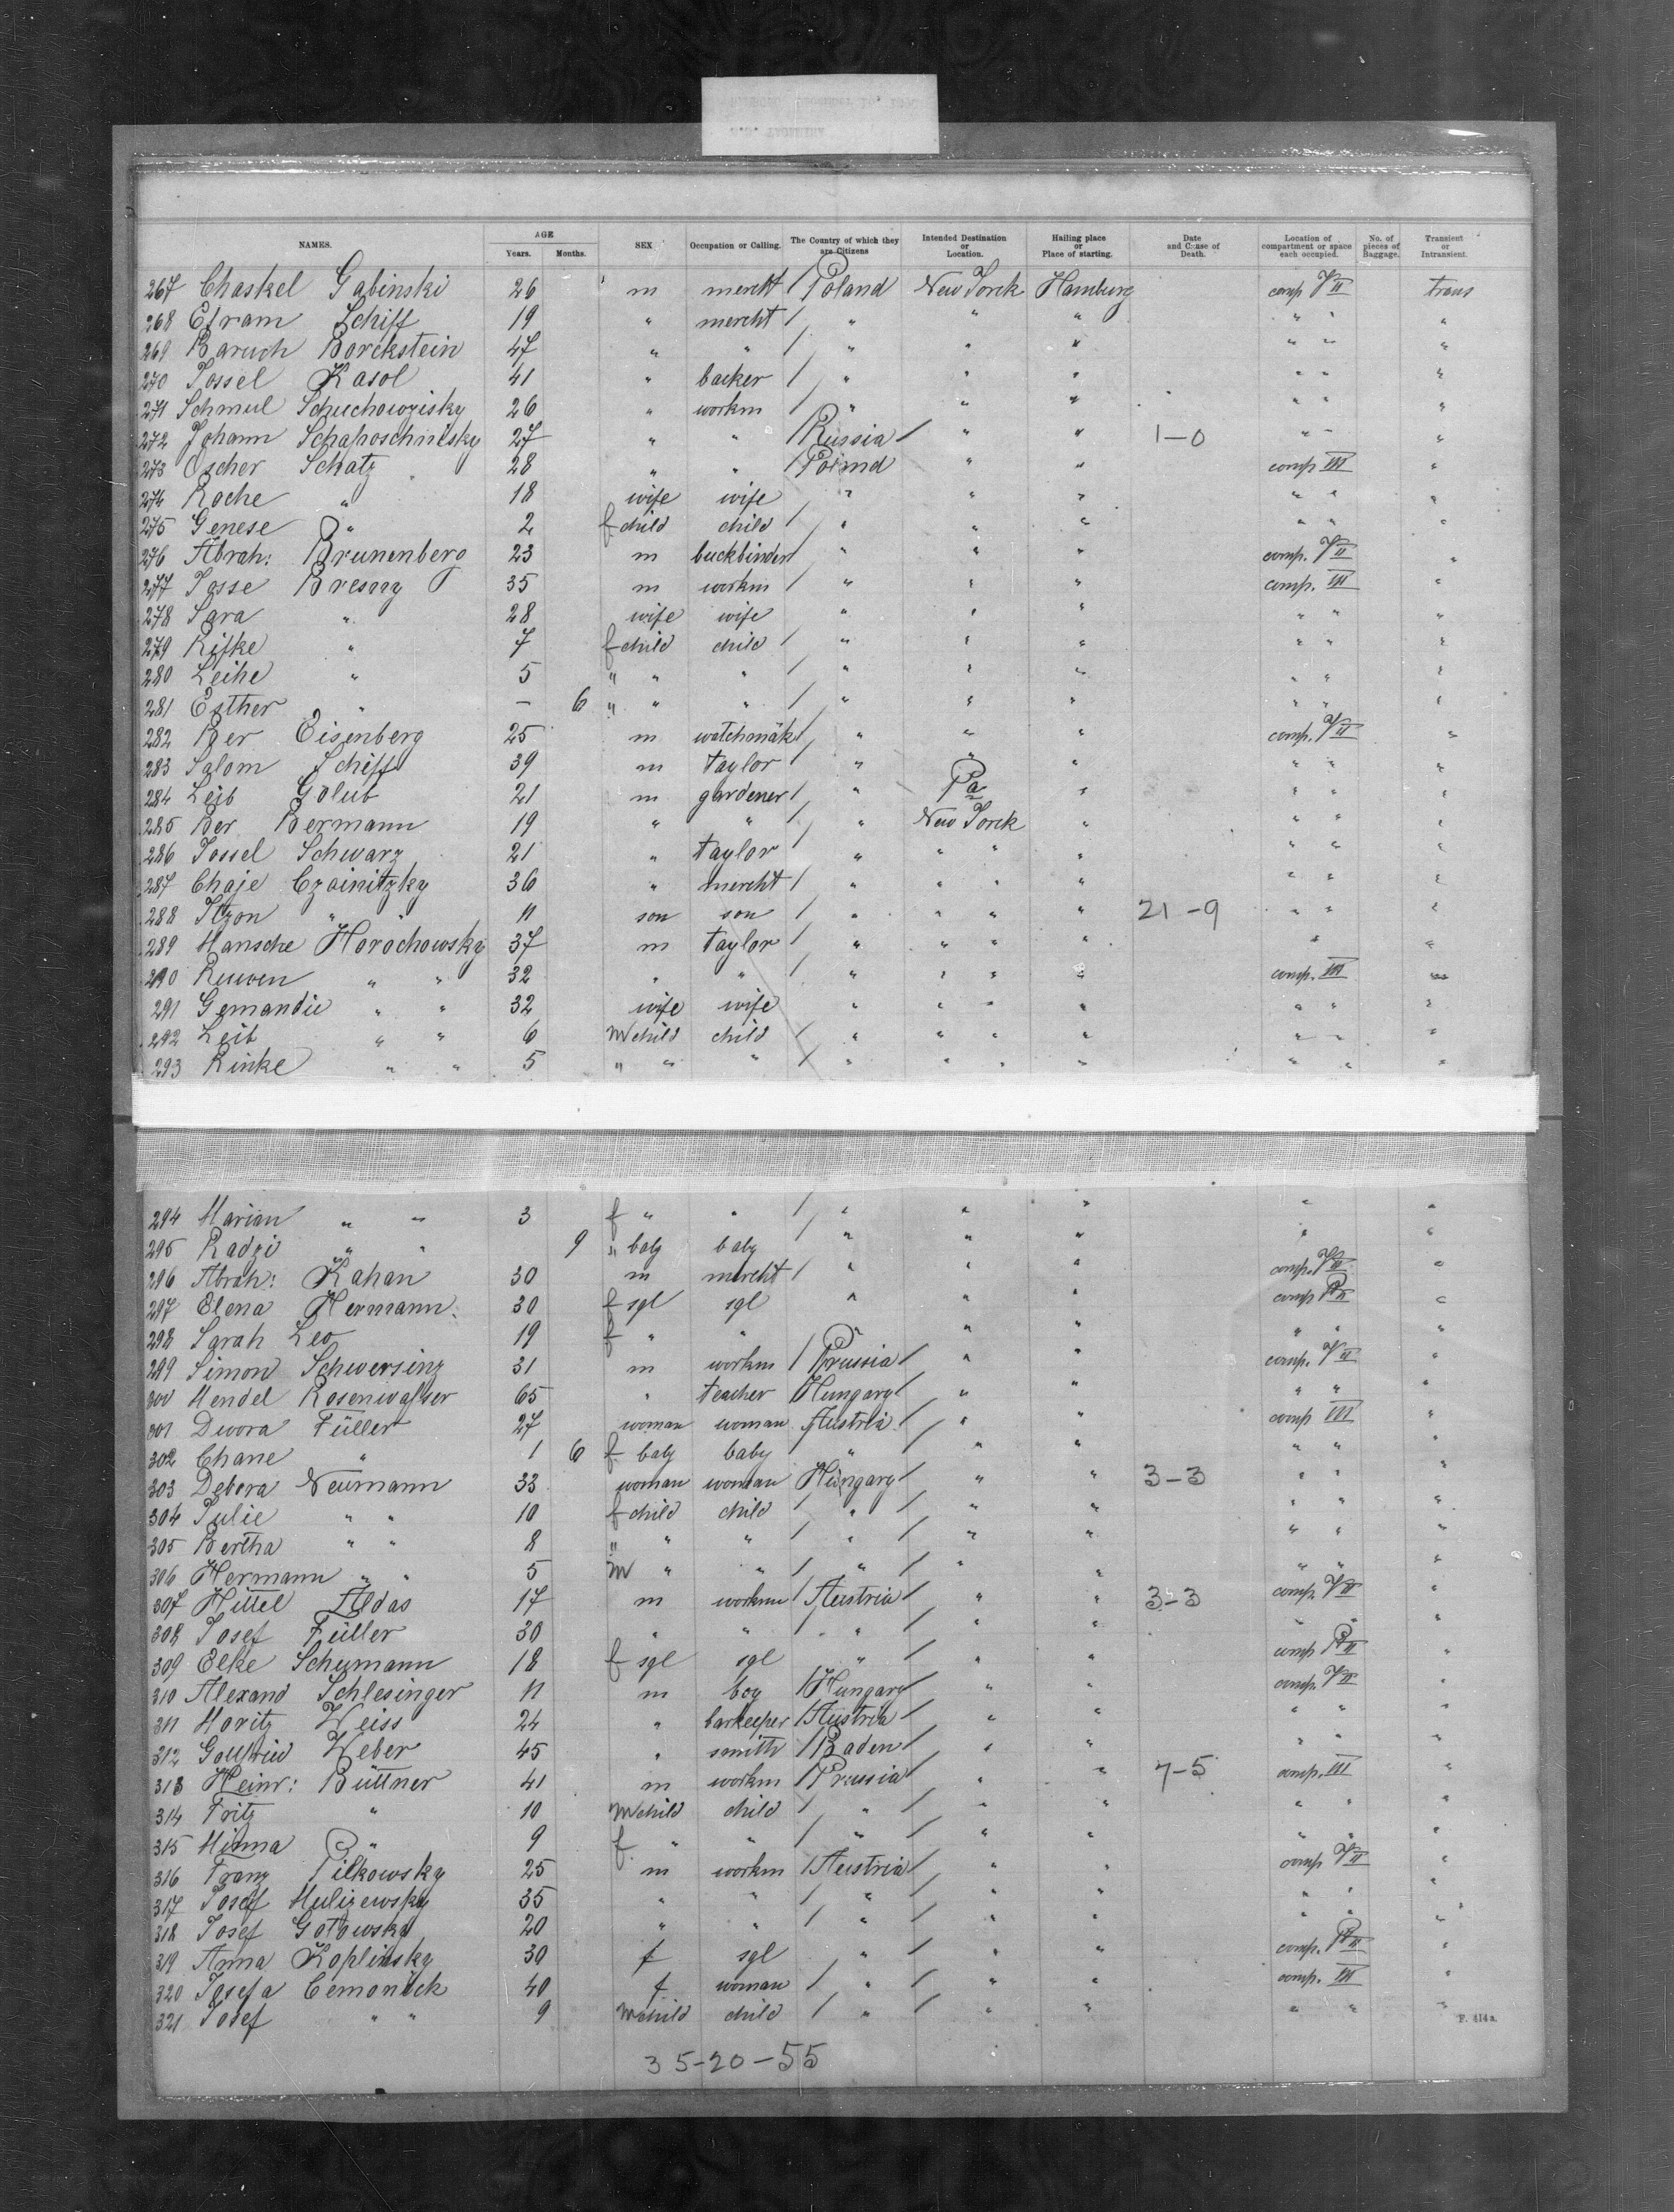 NAMES. AGE Years. Months. SEX Occupation or Calling. The Country of which they are Citizens Intended Destination or Location. Hailing place or Place of starting. Date and Cause of Death. Location of compartment or space each occupied. No. of pieces of Baggage. Transient or Intransient.
267 Chaskel Gabinski 26 m mercht / Poland New Yorck Hamburg comp VII trans
268 Efram Schiff 19 " mercht / " " " " " "
269 Baruch Borckstein 47 " " / " " " " " "
270 Jossel Kasol 41 " backer / " " " " " "
271 Schmul Schuchowzisky 26 " workm / " " " " " "
272 Johann Schaposchnisky 27 " " / Russia / " " 1-0 " " "
273 Oscher Schatz 28 " " / Poland " " comp III "
274 Roche " 18 wife wife " " " " " "
275 Genese " 2 f child child / " " " " " "
276 Abrah: Brunenberg 23 m buckbinder / " " " comp. VII "
277 Josse Bresny 35 m workm / " " " comp. III "
278 Sara " 28 wife wife " " " " " "
279 Rifke " 7 f child child / " " " " " "
280 Leihe " 5 " " " / " " " " " "
281 Esther " - 6 " " " / " " " " " "
282 Ber Eisenberg 25 m watchmäk / " " " comp. VII "
283 Salom Schiff 39 m taylor / " " " " " "
284 Leib Golub 21 m gardener / " Pa " " " "
285 Ber Bermann 19 " " / " New Yorck " " " "
286 Jossel Schwarz 21 " taylor / " " " " " " "
287 Chaje Czainitzky 36 " mercht / " " " " " " "
288 Itzon " 11 son son / " " " " 21-9 " " "
289 Mansche Horochowsky 37 m taylor / " " " " " "
290 Ruwen " " 32 " " / " " " " comp. III "
291 Gemandie " " 32 wife wife " " " " " " "
292 Leib " " 6 m child child / " " " " " " "
293 Rinke " " 5 " " " / " " " " " " "
294 Marian " " 3 f " " / " " " " "
295 Radzi " " 9 " baby baby / " " " " "
296 Abrah: Kahan 30 m mercht / " " " comp. VII "
297 Elena Hermann 30 f sgl sgl " " " comp "
298 Sarah Leo 19 f " " " " " " " "
299 Simon Schwersinz 31 m workm / Prussia / " " comp. VII "
300 Mendel Rosenwasser 65 " teacher Hungary / " " " " "
301 Dwora Füller 27 woman woman Austria / " " comp III "
302 Chane " 1 6 f baby baby " / " " " " "
303 Debora Neumann 33 woman woman Hungary / " " 3-3 " " "
304 Julie " " 10 f child child / " / " " " " "
305 Bertha " " 8 " " " / " / " " " " "
306 Hermann " " 5 m " " / " / " " " " "
307 Hittel Aldas 17 m workm / Austria / " " 3-3 comp. VII "
308 Josef Füller 30 " " / " / " " " " "
309 Elke Schumann 18 f sgl sgl " / " " comp "
310 Alexand Schlesinger 11 m boy / Hungary / " " comp. VII "
311 Moritz Weiss 24 " barkeeper / Austria / " " " " "
312 Gottfried Weber 45 " smith / Baden / " " " " "
313 Heinr: Büttner 41 m workm / Prussia / " " 7-5 comp. III "
314 Fritz " 10 m child child / " / " " " " "
315 Minna " 9 f " " / " / " " " " "
316 Franz Pilkowsky 25 m workm / Austria / " " comp VII "
317 Josef Mulizewsky 35 " " / " / " " " " "
318 Josef Gotowsky 20 " " / " / " " " " "
319 Anna Koplinsky 30 f sgl " / " " comp. "
320 Josefa Cemonick 40 f woman / " / " " comp. III "
321 Josef " " 9 m child child / " / " " " " "
F. 414a.
35-20-55